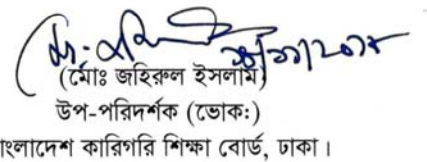 (মোঃ জহিরুল ইসলাম)
উপ-পরিদর্শক (ভোক:)
বাংলাদেশ কারিগরি শিক্ষা বোর্ড, ঢাকা।